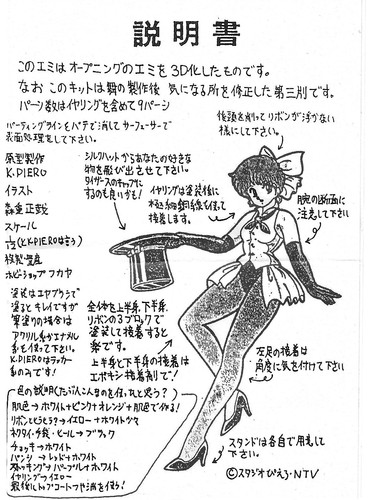 説明書
このエミはオープニングのエミを3D化したものです。
なお このキットは 製作後 気になる所を修正した第三 です。
パーツ数はイヤリングを含めて9パーツ
パーティングラインをパテで消してサーフェーサーで
表面処理をして下さい。
原型製作
K.PIERO
イラスト
森 正
スケール
(K.PIEROは言う)
ホビーショップ フカヤ
シルクハットからあなたの好きな
物を飛び出させて下さい
タイガースのキャップに
するのも良いかも!
後頭を削ってリボンが浮かない
様にして下さい。
イヤリングは塗装後に
極細 線を使って
接着します。
腕の断面に
注意して下さい
塗装はエアブラシで
塗るとキレイですが
筆塗りの場合は
アクリル系かエナメル
系を使って下さい。
K.PIEROはラッカー
系のみです!
全体を上半身、下半身、
リボンの3ブロックで
塗装して接着すると
楽です。
上半身と下半身の接着は
エポキシ接着剤で!
左足の接着は
角度に気を付けて下さい
色の説明(たぶんこん色を使ったと思う?)
肌色→ホワイト+ピンク+オレンジ+肌色で作る!
リボンとヒラヒラ→イエロー+ホワイト
ネクタイ・手袋・ヒール→ブラック
チョッキ→ホワイト
パンツ→レッド+ホワイト
ストッキング→パープル+ホワイト
イヤリング→イエロー
最後トップコートでつや消を使う!
スタンドは各自で用意して
下さい。
©スタジオぴえろ・NTV